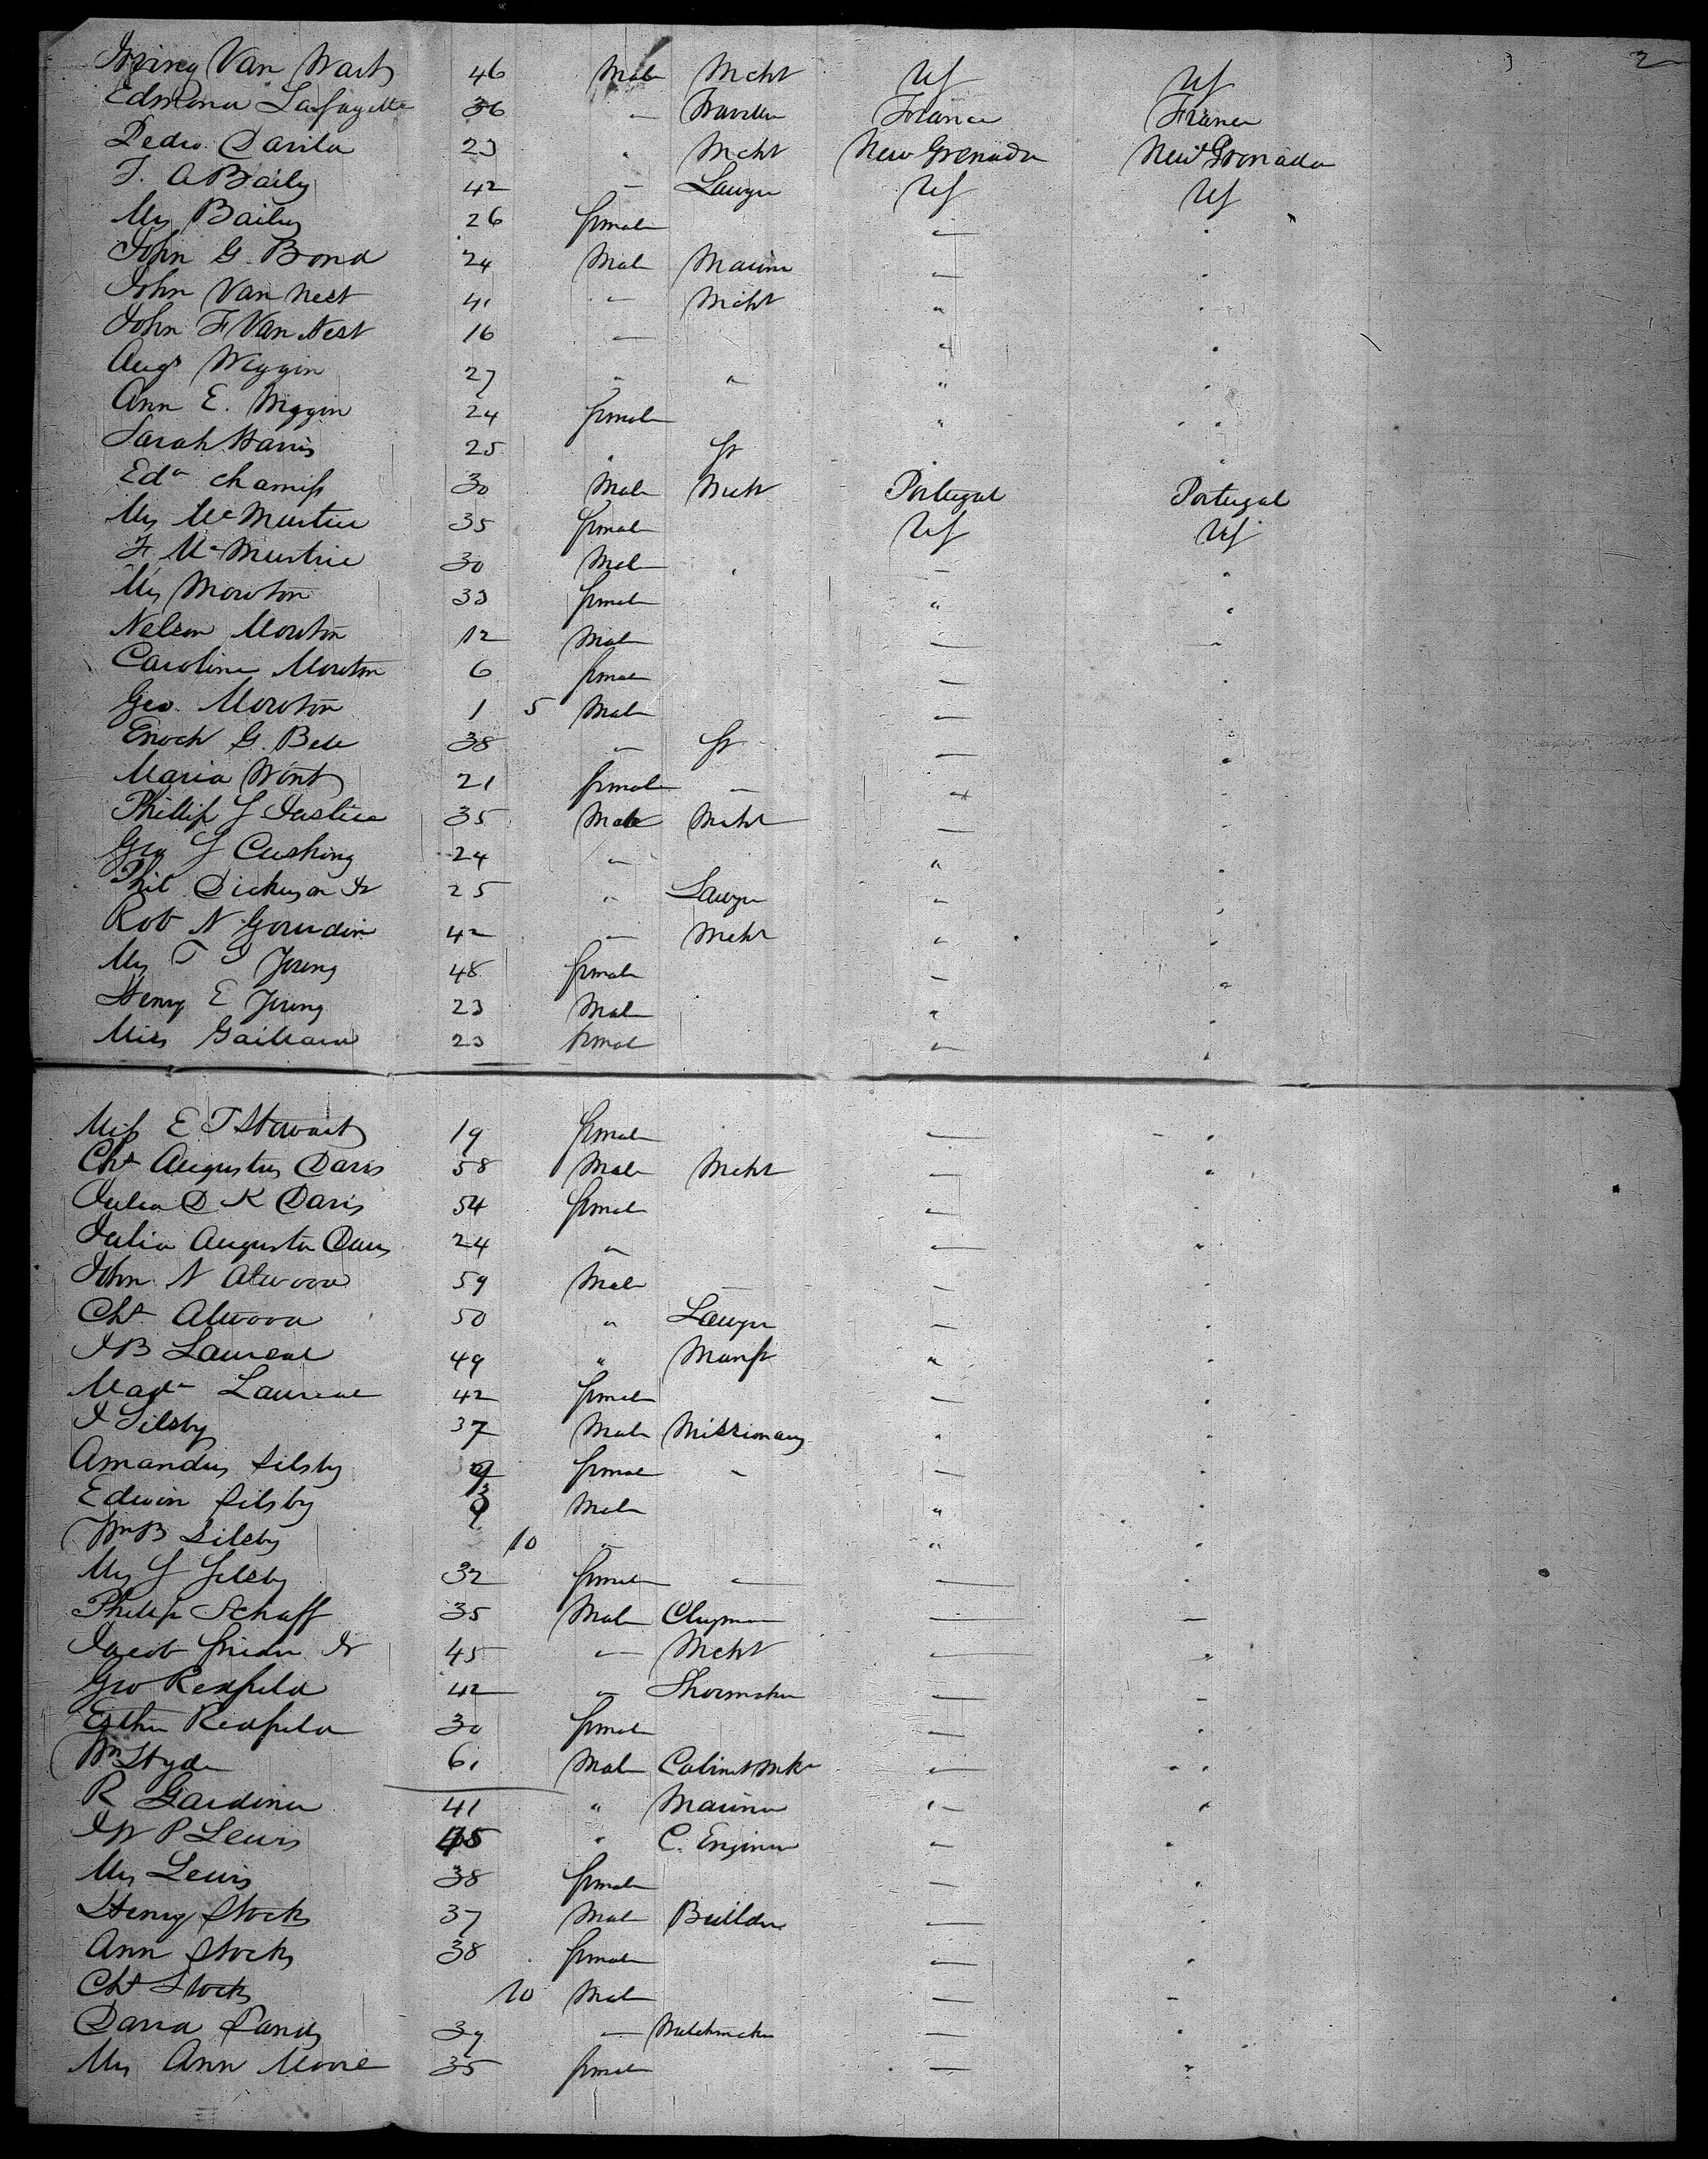 2
Irving Van Wart 46 Male Mcht US US
Edmond Lafayette 36 " Traveller France France
Pedro Davila 23 " Mcht New Grenada New Grenada
F. A Baily 42 " Lawyer US US
Mrs Bailey 26 female " "
John G. Bond 24 Male Marine " "
John Van Nest 41 " Mcht " "
John F Van Nest 16 " " "
Augs Wiggin 27 " " " "
Ann E. Wiggin 24 female " "
Sarah Harris 25 " St " "
Edn Chamiss 30 Male Mcht Portugal Portugal
Mrs McMurtrie 35 female US US
F. McMurtrie 30 Male " "
Mrs Mowton 33 female " "
Nelson Mowton 12 Male " "
Caroline Mowton 6 female " "
Geo. Mowton 1 5 Male " "
Enoch G. Bell 38 " St " "
Maria Wont 21 female " " "
Phillip S Justice 35 Male Mcht " "
Geo S Cushing 24 " " "
Phil Dickinson Jr 25 " Lawyer " "
Rob N Gourdin 42 " Mcht " "
Mrs T Y 48 female " "
Henry E 23 Male " "
Miss Gaillard 23 female " "
Miss E T Stewart 19 female " "
Chs Augustus Davis 58 Male Mcht " "
Julia D K Davis 54 female " "
Julia Augusta Davis 24 " " "
John N Atwood 59 Male " " "
Chs Atwood 50 " Lawyer " "
J B Laureal 49 " Manft " "
Madm Laureal 42 female " "
J Silsby 37 Male Missionary " "
Amandus Silsby female " " "
Edwin Silsby Male " "
Wm B Silsby 10 " " "
Mrs S Silsby 32 female " " "
Philip Schaff 35 Male Clergman " "
Jacob Jr 45 " Mcht " "
Geo Redfield 42 " Shoemaker " "
Esther Redfield 30 female " "
Wm Hyde 61 Male Cabinet Mkr " "
R Gardiner 41 " Mariner " "
J W P Lewis 45 " C. Engineer " "
Mrs Lewis 38 female " "
Henry Stocks 37 Male Builder " "
Ann Stocks 38 female " "
Chs Stocks 10 Male " "
David Sands 39 " Watchmaker " "
Mrs Ann Moore 35 female " "